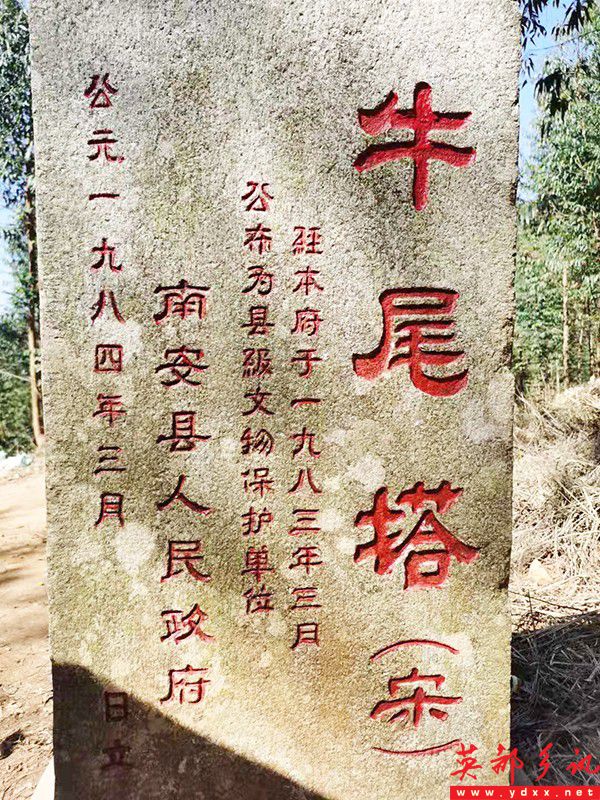 牛尾塔(宋)
經本府于一九八三年三月
公布为县級文物保护单位
南安县人民政府
公元一九八四年三月 日立
英都乡讯
www.ydxx.net